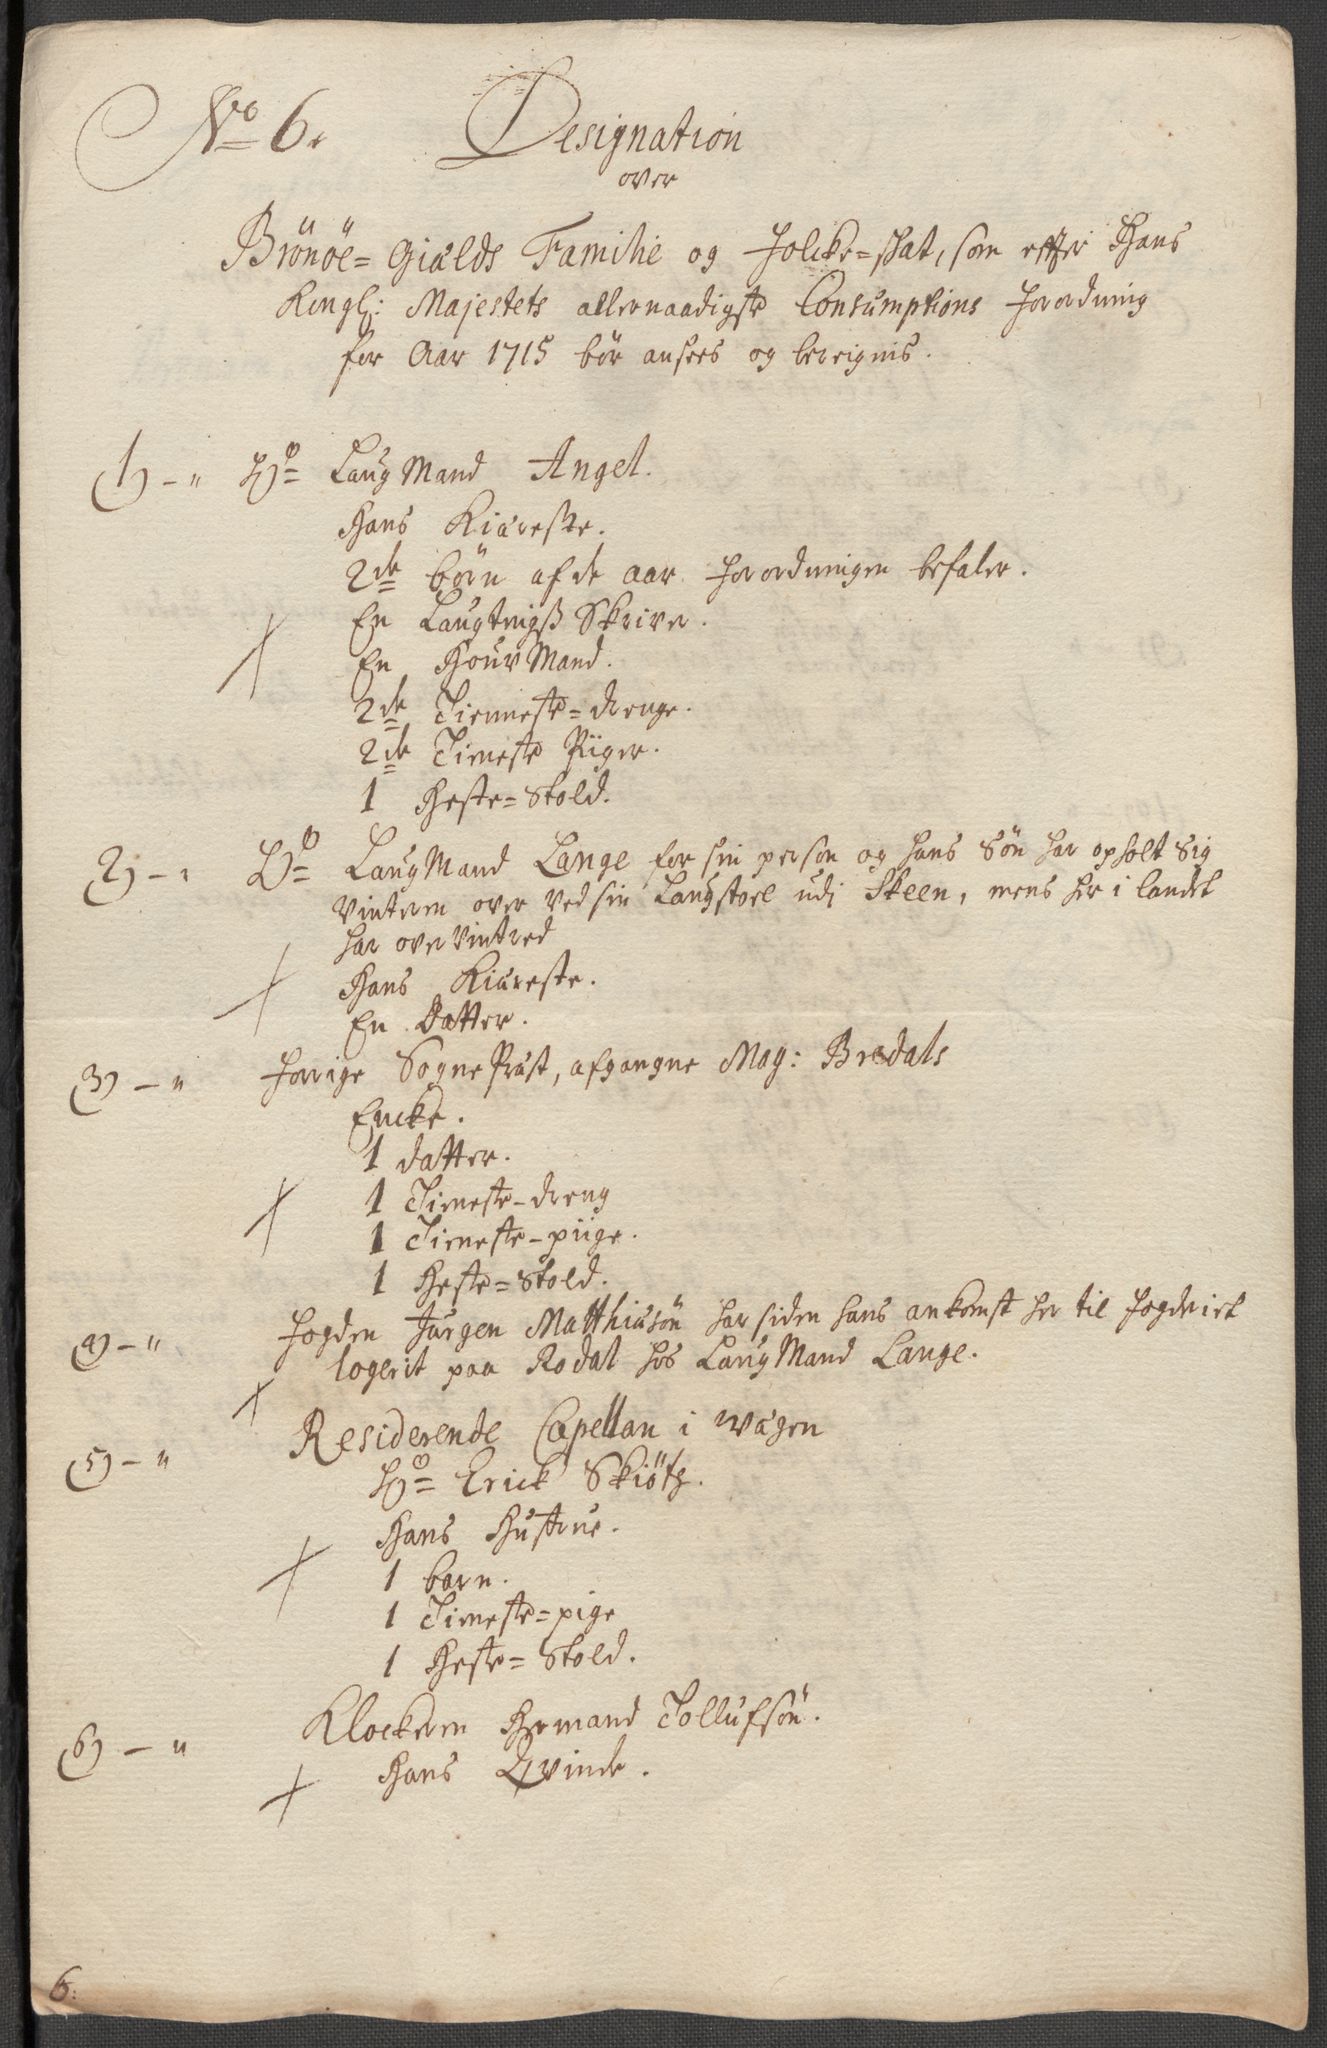 No 6.
Designation
over
Brönöe= Gialds Familie og Folcke=skat, som effter Hans
Kongl: Majestets allernaadigste Consumptions Forordning
for Aar 1715 bör ansees og bereignis.
(1) - " Hr Laug Mand Angel.
Hans Kiæreste.
2de börn af de aar Forordningen befaler.
En Laugtings Skriver.
En Houv Mand.
2de Tienneste=drenge.
2de Tieneste Piiger.
1 Heste=Stold.
(2) - " Hr Laug Mand Lange for sin person og hans Sön har opholt sig
vinteren over ved sin Laugstoel udi Skeen, mens her i landet
har overvintred
Hans Kiæreste.
En Datter.
(3) - " Forrige Sogne Præst, afgangne Mag: Bredals
Encke.
1 datter.
1 Tieneste-dreng
1 Tieneste-piige.
1 Heste=Stold.
(4) - " Fogden Jürgen Matthiasön har siden hans ankomst her til Fogderiet
logerit paa Rodal hos Laug Mand Lange.
(5) - " Residerende Capellan i Wægen
Hr Erick Skiötz.
Hans Hustrue.
1 barn.
1 Tieneste=pige
1 Heste=Stold.
(6) - " Klockeren Hermand Tollufsön.
Hans Qvinde.
6: